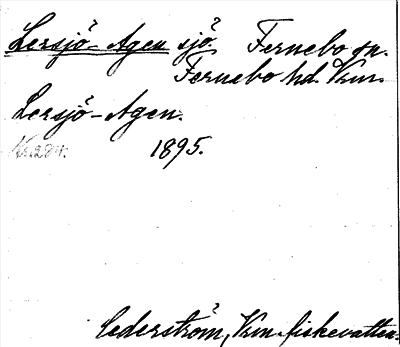 Lersjö-Agen sjö. Fernebo sn.
Fernebo hd. Vrm.
Lersjö-Agen.
1895.
Cederström, Vrm. fiskevatten.